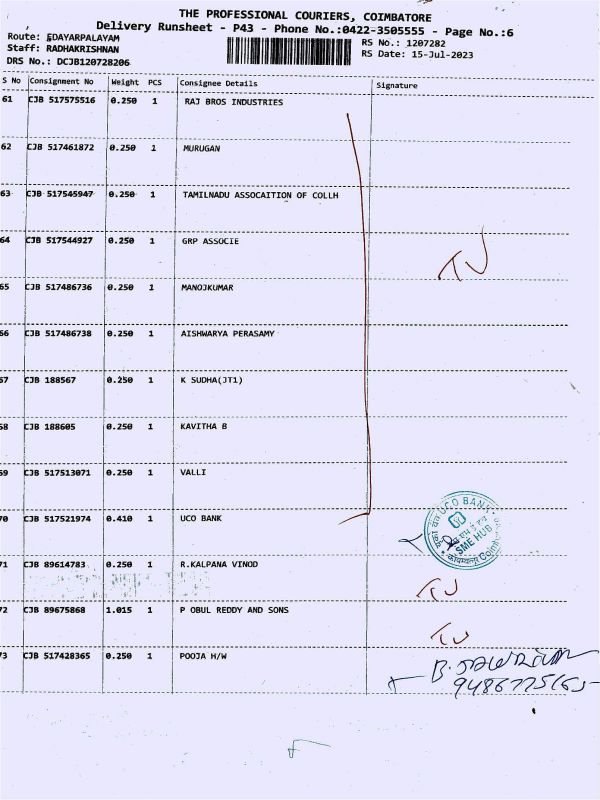 THE PROFESSIONAL COURIERS, COIMBATORE
Delivery Runsheet - P43 - Phone No.:0422-3505555 - Page No.:6
Route: EDAYARPALAYAM
Staff: RADHAKRISHNAN
DRS No.: DCJB120728206
RS No.: 1207282
RS Date: 15-Jul-2023
S No Consignment No Weight PCS Consignee Details Signature
61 CJB 517575516 0.250 1 RAJ BROS INDUSTRIES
62 CJB 517461872 0.250 1 MURUGAN
63 CJB 517545947 0.250 1 TAMILNADU ASSOCAITION OF COLLH
64 CJB 517544927 0.250 1 GRP ASSOCIE
65 CJB 517486736 0.250 1 MANOJKUMAR
66 CJB 517486738 0.250 1 AISHWARYA PERASAMY
67 CJB 188567 0.250 1 K SUDHA(JT1)
68 CJB 188605 0.250 1 KAVITHA B
69 CJB 517513071 0.250 1 VALLI
70 CJB 517521974 0.410 1 UCO BANK
UCO BANK
SME HUB
71 CJB 89614783 0.250 1 R.KALPANA VINOD
72 CJB 89675868 1.015 1 P OBUL REDDY AND SONS
73 CJB 517428365 0.250 1 POOJA H/W